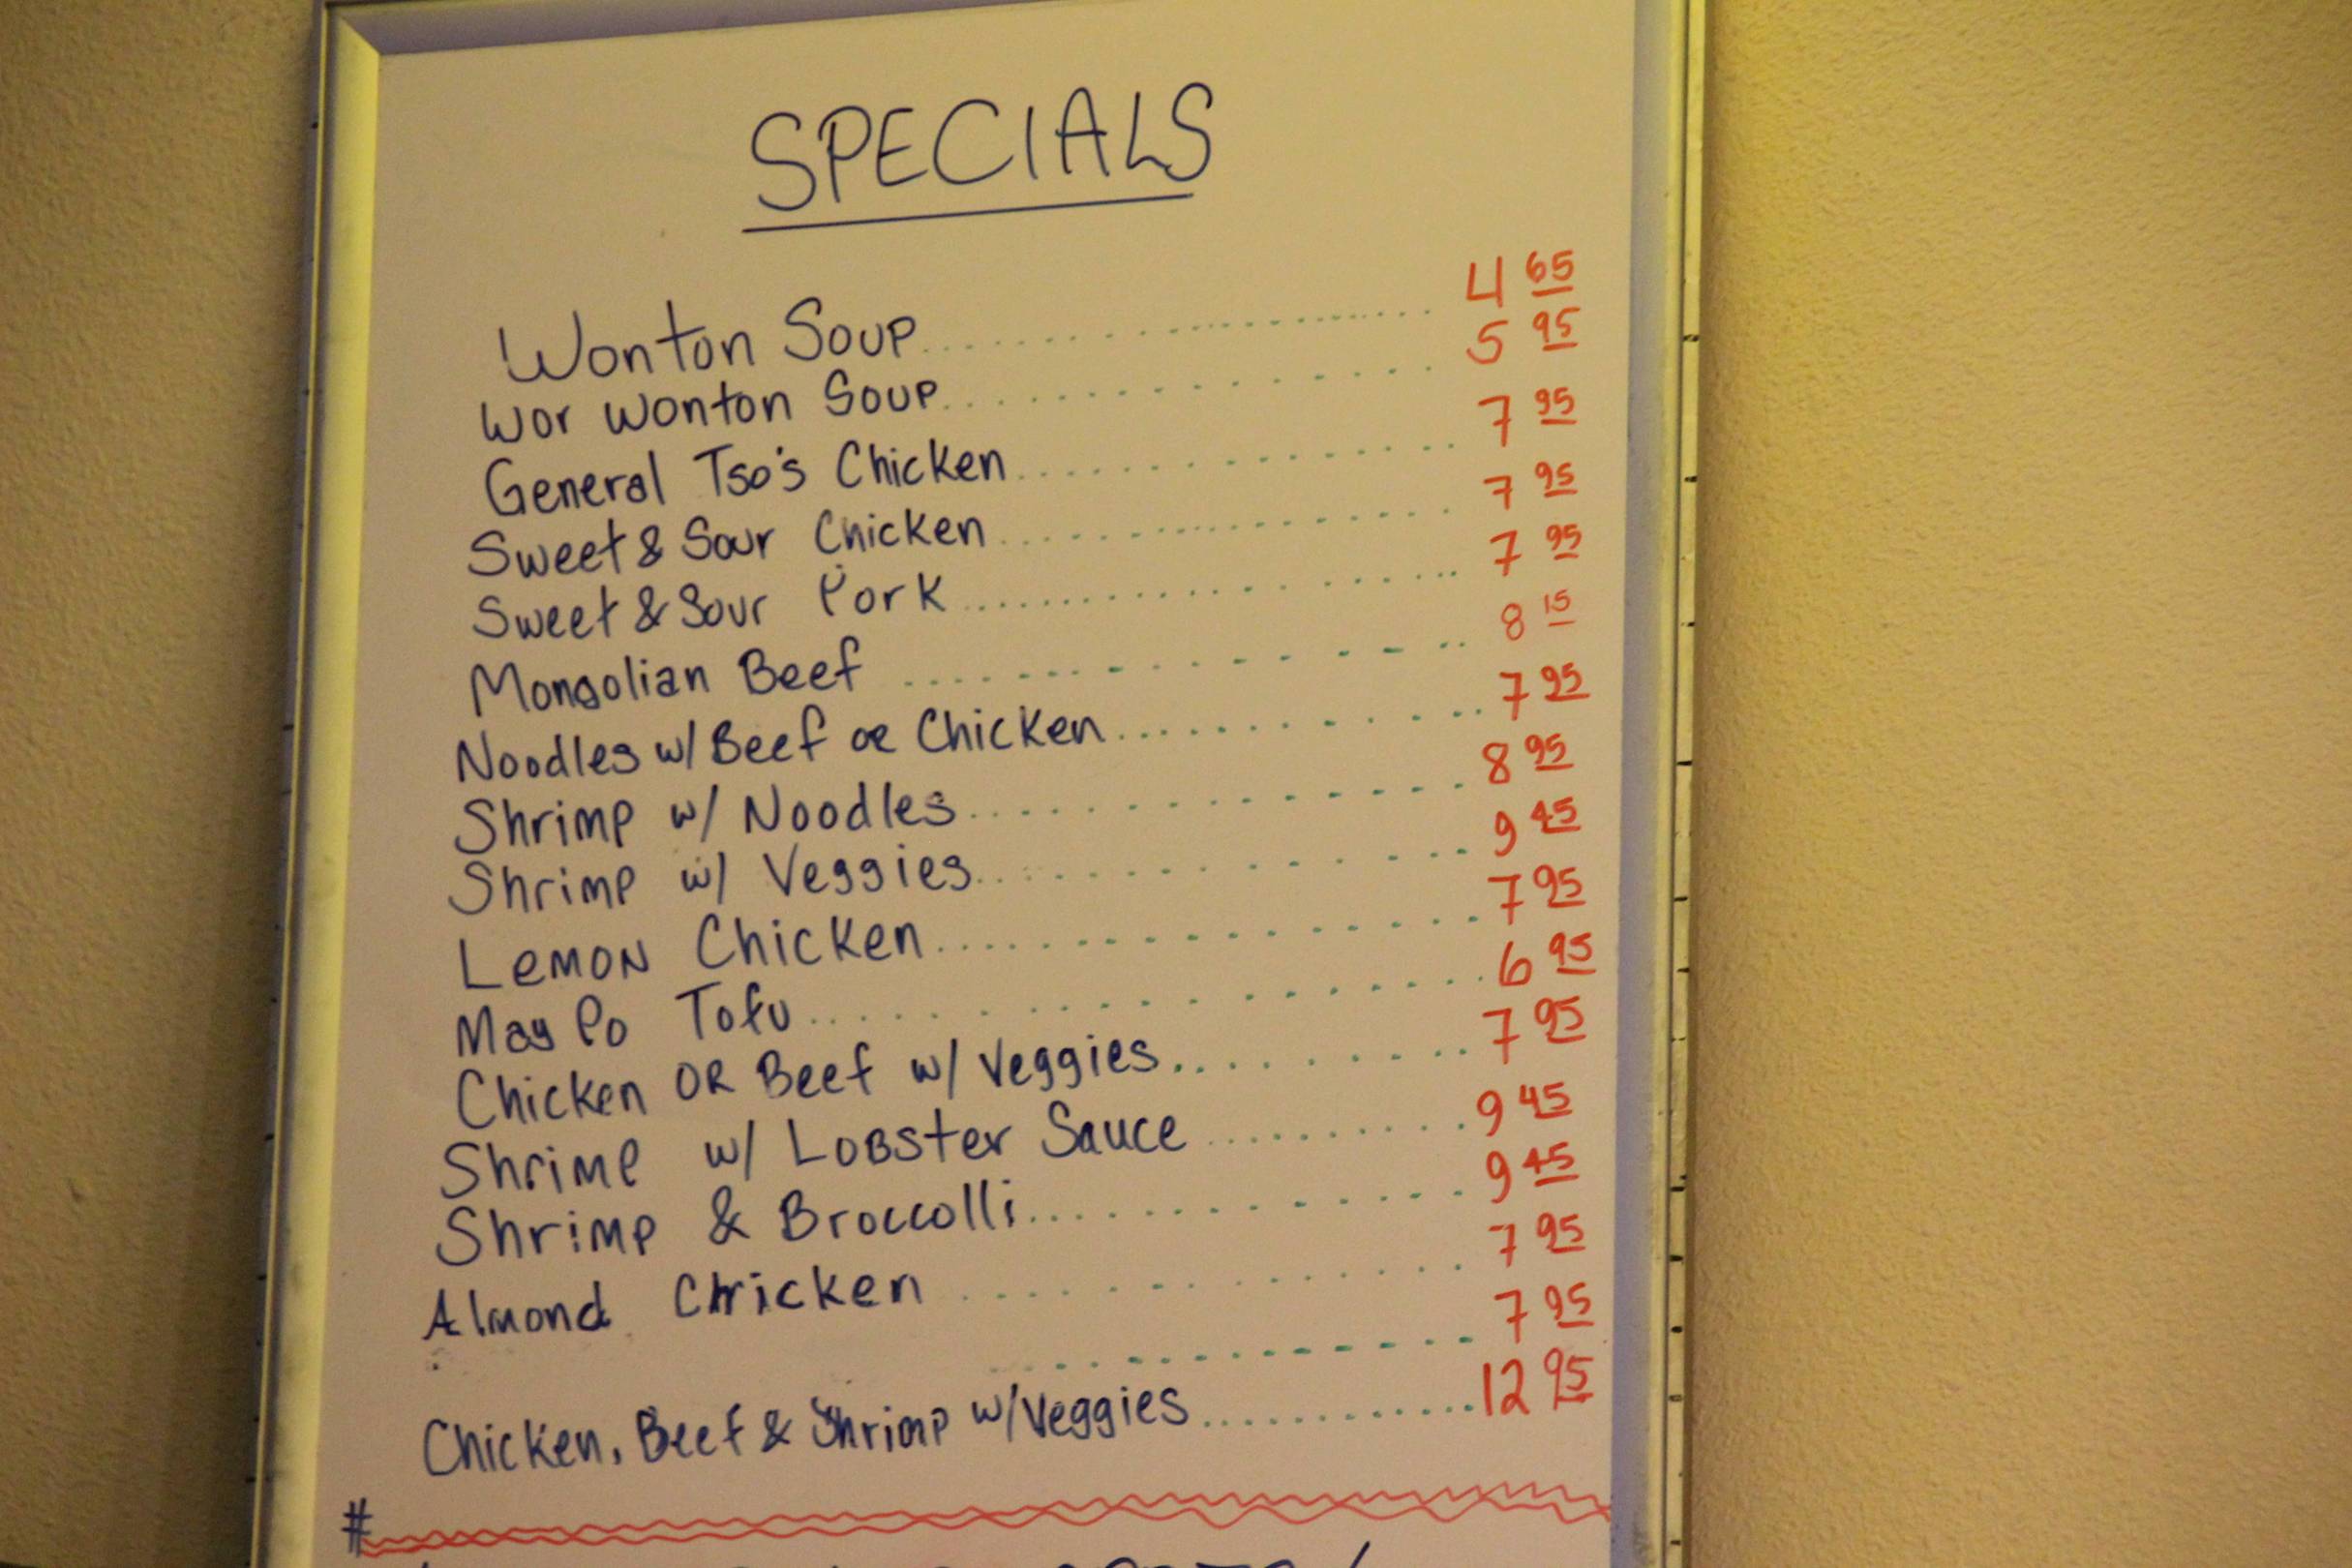 SPECIALS
Wonton Soup.................... 4 65
Wor Wonton Soup............... 5 95
General Tso's Chicken............... 7 95
Sweet & Sour Chicken.................... 7 95
Sweet & Sour Pork.................... 7 95
Mongolian Beef .................... 8 15
Noodles w/ Beef OR Chicken............... 7 95
Shrimp w/ Noodles............... 8 95
Shrimp w/ Veggies............... 9 45
Lemon Chicken............... 7 95
May Po Tofu............... 6 95
Chicken OR Beef w/ Veggies.......... 7 95
Shrimp w/ Lobster Sauce.......... 9 45
Shrimp & Broccolli............... 9 45
Almond Chicken ............... 7 95
.......... 7 95
Chicken, Beef & Shrimp w/ Veggies............... 12 95
#